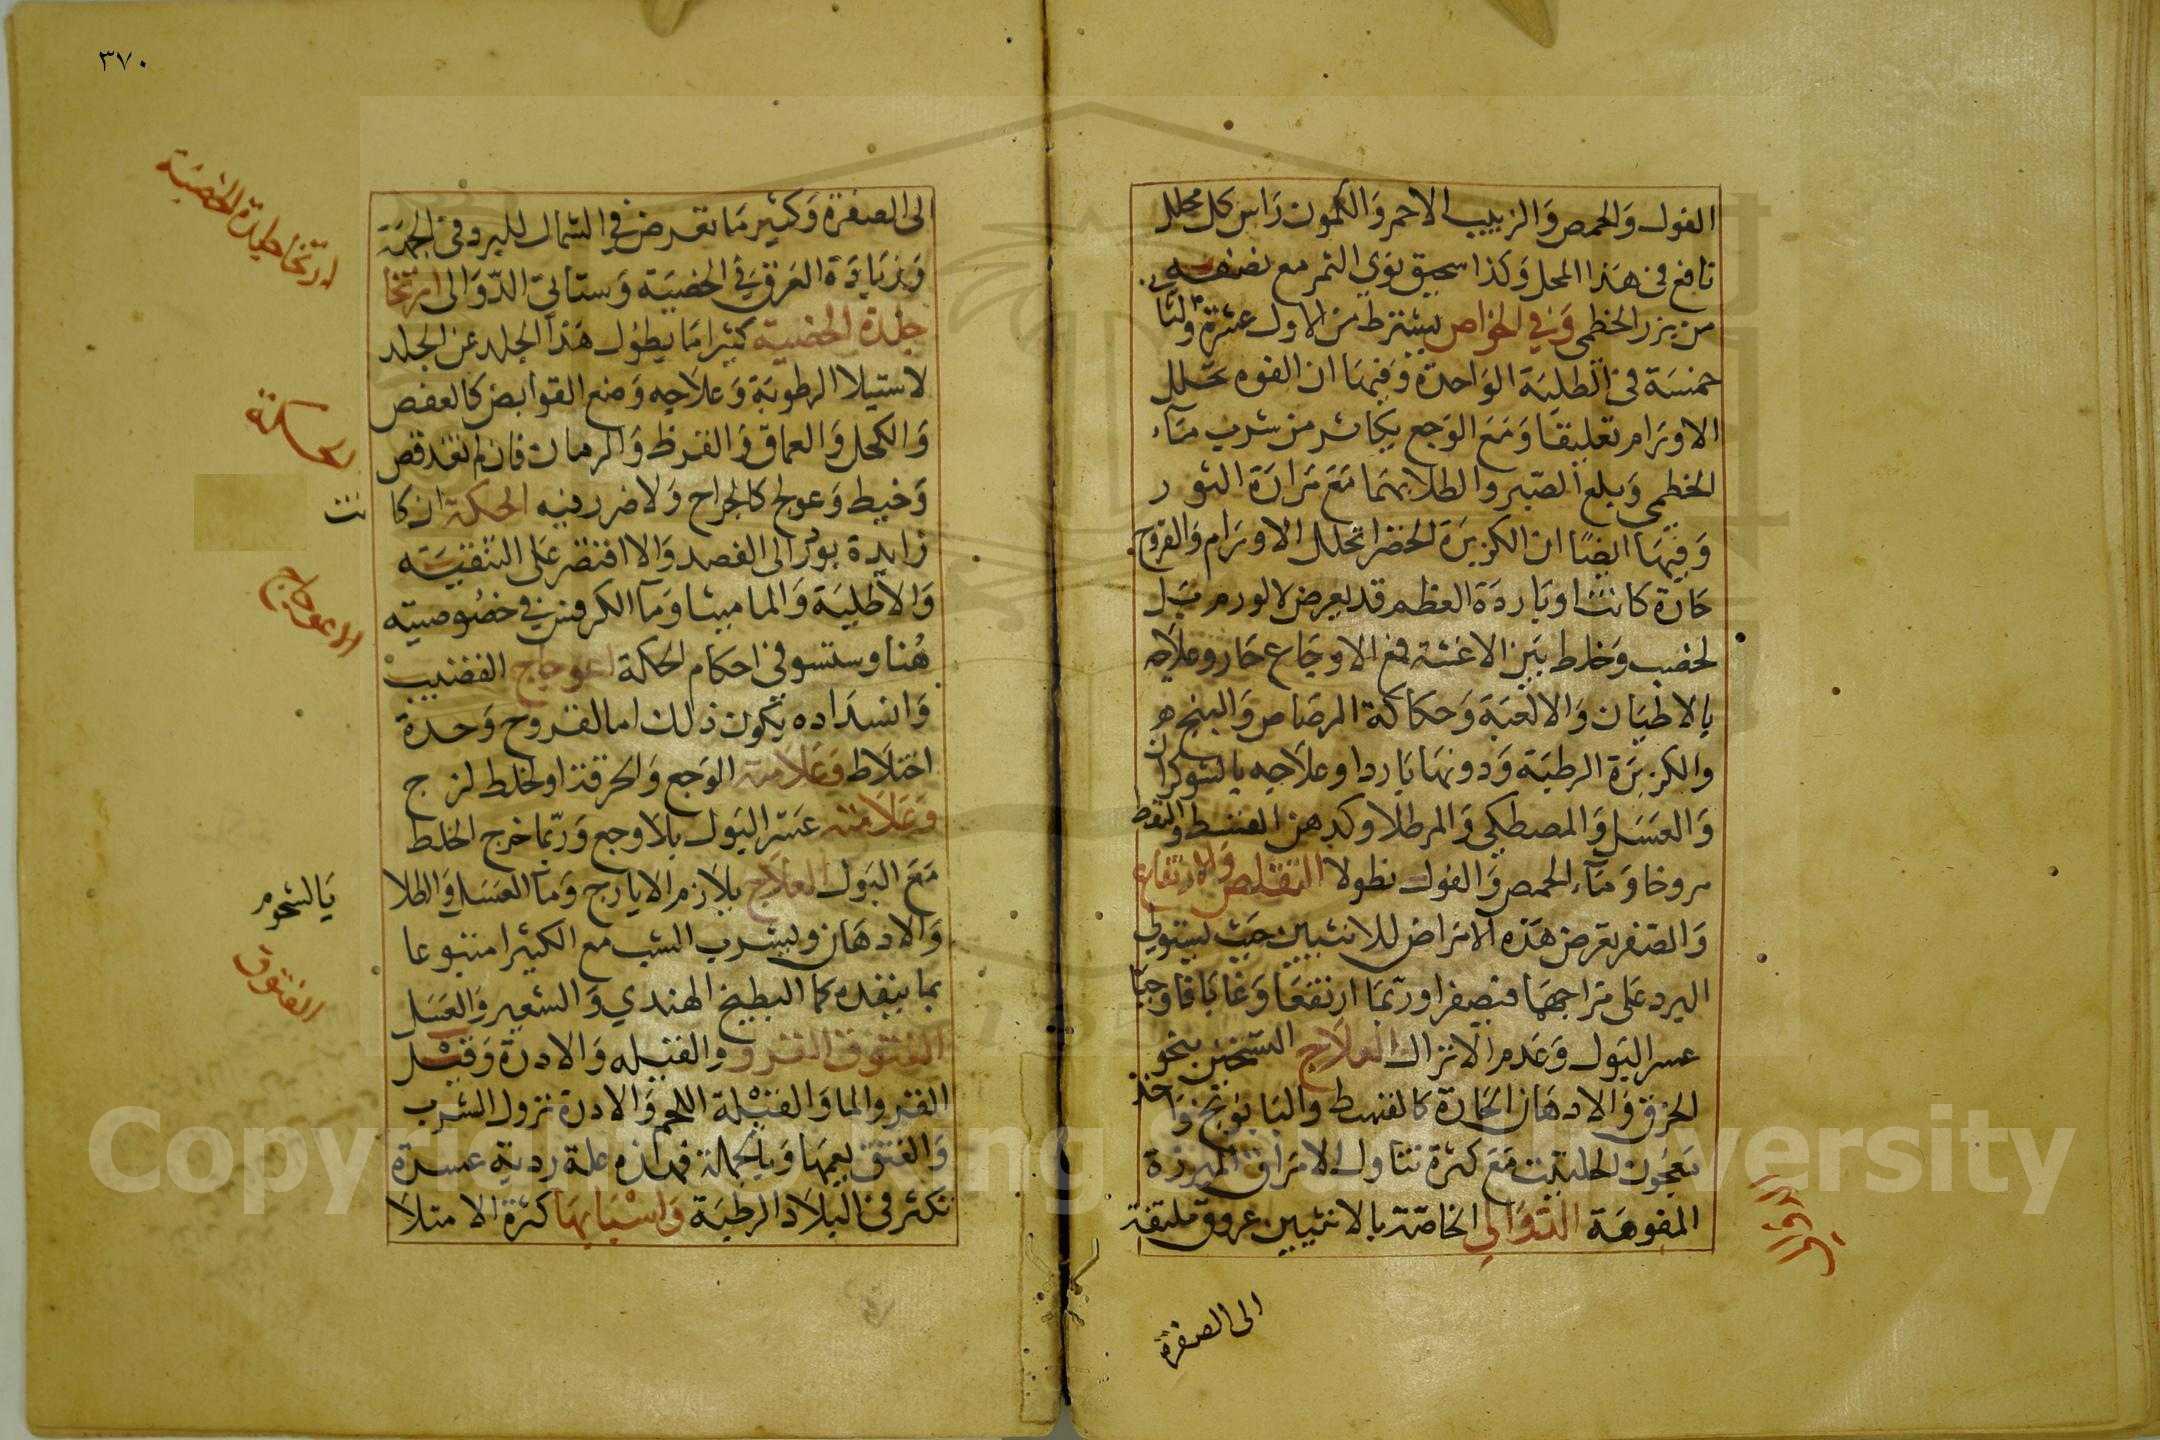 الفول والحمص والزبيب الاحمر والكمون راس كل محلل
نافع في هذا المحل وكذا سحيق نوي التمر مع نصفه
من بزر الخطمي وفي الخواص يشترط من الاول عشرة والثا
خمسة في الطلية الواحدة وفيها ان الفوه تحلل
الاورام تعليقا ومع الوجع يكاثر من شرب ماء
الخطمي وبلع الصبر والطلا بهما مع مرارة الثور
وفيها ايضا ان الكزبرة الخضرا تحلل الاورام والقروح
حارة كانت او باردة العظم قد يعرض لا لورم بل
لخصب وخلط بين الاغشة فمع الاوجاع حار وعلاجه
بالاطيان والالعبة وحكاكة الرصاص والبنج
والكزبرة الرطبة ودونها باردا وعلاجه بالشوكران
والعسل والمصطكي والمر طلا وكدهن القسط والنفط
مروخا وماء الحمص والفول نطولا التقلص والارتفاع
والصغر تعرض هذه الامراض للانثيين حيث يستولي
البرد على مزاجهما فتصغرا وربما ارتفعا وغابا فاوجبا
عسر البول وعدم الانزال العلاج التسخين بنحو
الخرق والادهان الحارة كالقسط والبابونج واخذ
معجون الحلتيت مع كثرة تناول الامراق المبزرة
المفوهة الدوالي الخاصة بالانثيين عروق ملتفة
الدوالي
الى الصفرة
٣٧٠
لى الصفرة وكثير ما تعرض في الشمال للبرد في الجهة
وبزيادة العرق في الخصية وستاتي الدوالى ارتخا
جلدة الخصية كثيرا ما يطول هذا الجلد عن الجلد
لاستيلا الرطوبة وعلاجه وضع القوابض كالعفص
والكحل والعماق والقرظ والرمان فان لم تفد قص
وخيط وعولج كالجراح ولا ضرر فيه الحكة ان كا
نت
زايدة بودر الى الفصد والا اقتصر على التنقية
والاطلية والماميثا وما الكرفس في خصوصيته
هنا وستسوفي احكام الحكة اعوجاج القضيب
وانسداده يكون ذلك اما لقروح وحدة
اختلاط وعلامته الوجع والحرقة او لخلط لزج
وعلامته عسر البول بلا وجع وربما خرج الخلط
مع البول العلاج يلازم الايارج وما العسل والطلا
بالشحوم
والادهان ويشرب الشب مع الكثيرا متبوعا
بما ينفده كما البطيخ الهندي والشعير والعسل
الفتوق القرو والقيله والادرة وقيل
القرو الما والقيلة اللحم والادرة نزول الثرب
والفتق يعمها وبالجملة فهذه علة ردية عسرة
تكثر في البلاد الرطبة واسبابها كثرة الامتلا
ارتخا جلدة الخصية
الحكة
الاعوجاج
الفتوق
Copyright © King Saud University